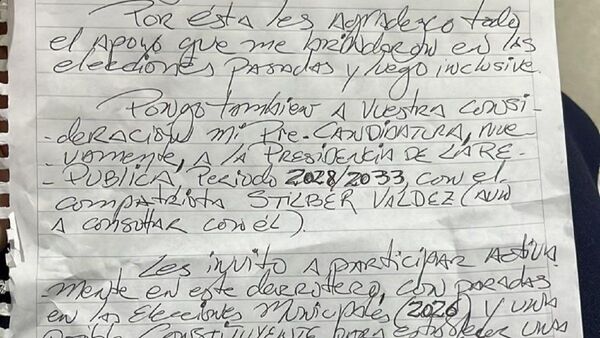 Por ésta les agradezco todo
el apoyo que me brindaron en las
elecciones pasadas y luego inclusive.
Pongo tambien a vuestra consi-
deración mi Pre-CANDIDATURA, nue-
vamente, a la PRESIDENCIA DE LA RE-
PUBLICA, Periodo 2028/2033 con el
compatriota STILBER VALDEZ (AUN
A consultar con él).
Les invito a participar activa
mente en este derrotero, con paradas
en las Elecciones Municipales (2026) y una
posible CONSTITUYENTE para establecer una